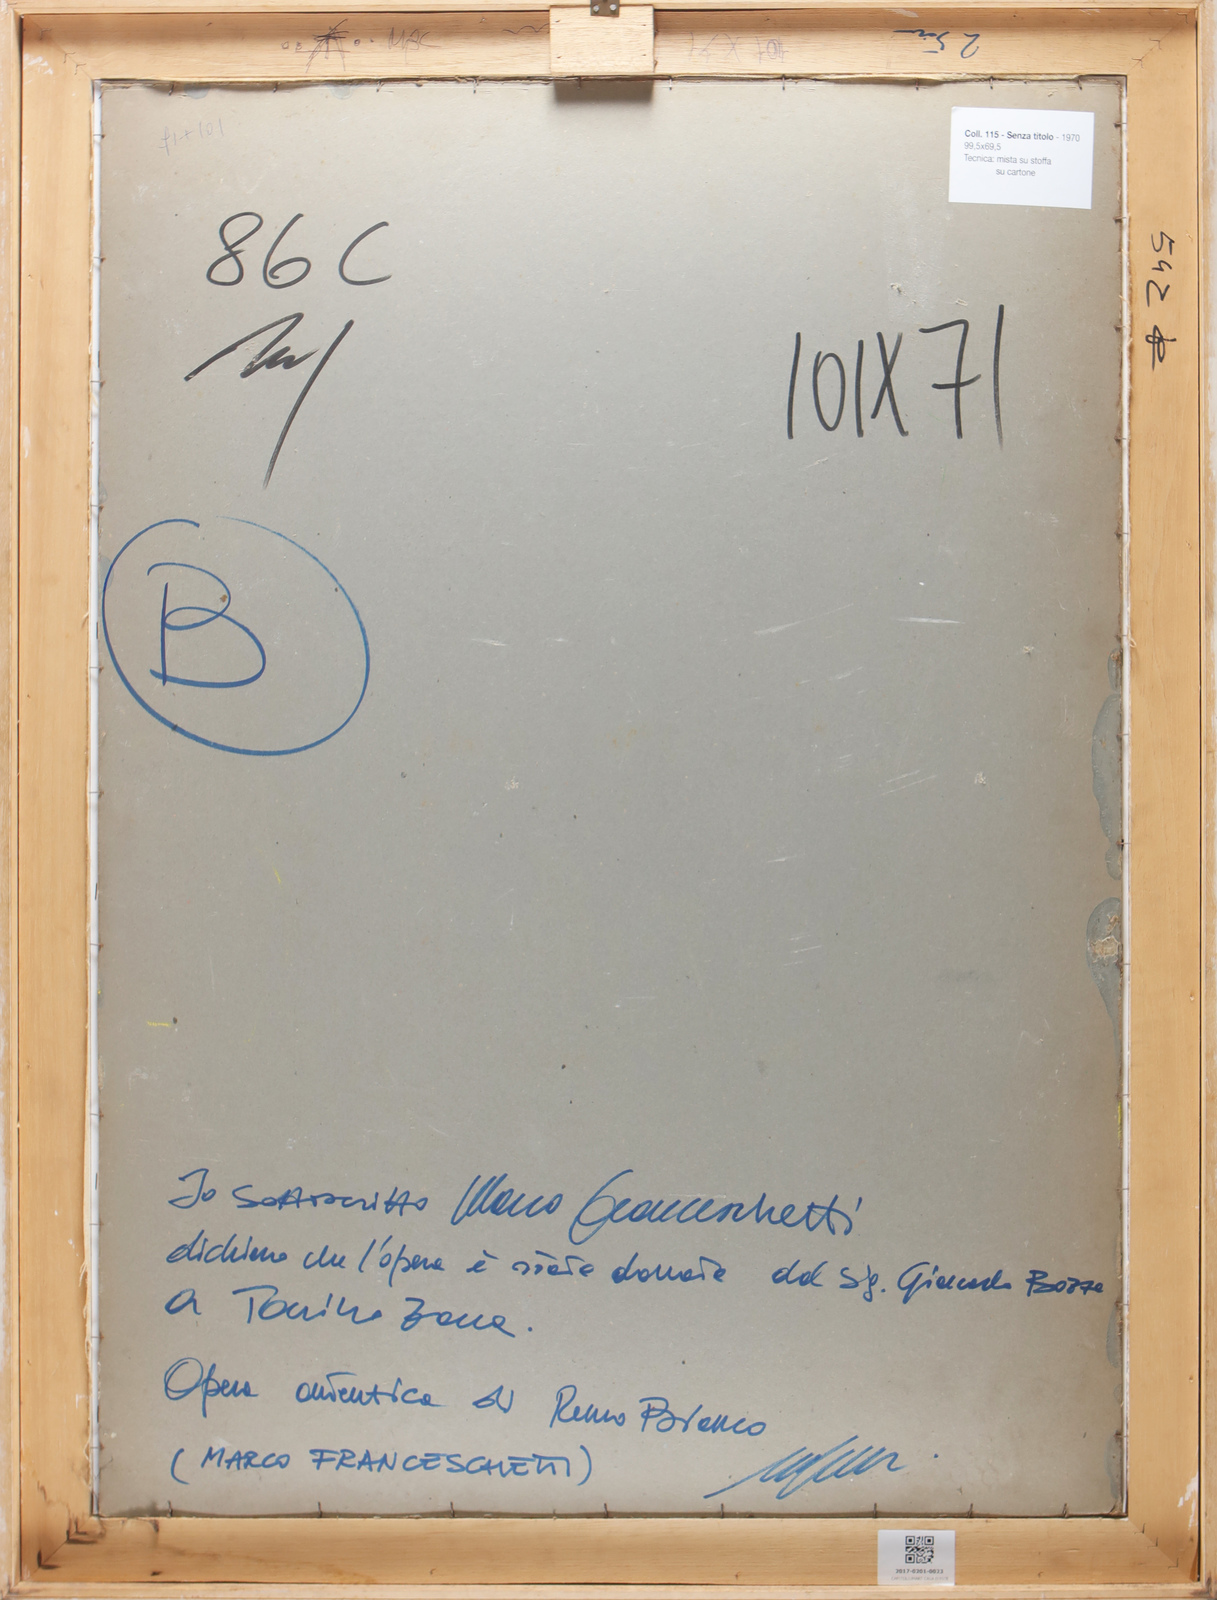 71x101
Coll. 115 - Senza titolo - 1970
99,5x69,5
Tecnica: mista su stoffa
su cartone
86 C
101X71
542
B
Io sottoscritto Marco Franceschetti
dichiaro che l'opera è stata donata dal Sig. Giancarlo Bozza
a Tonino Zana.
Opera autentica di Remo Bianco
(MARCO FRANCESCHETTI)
3017-0301-0033